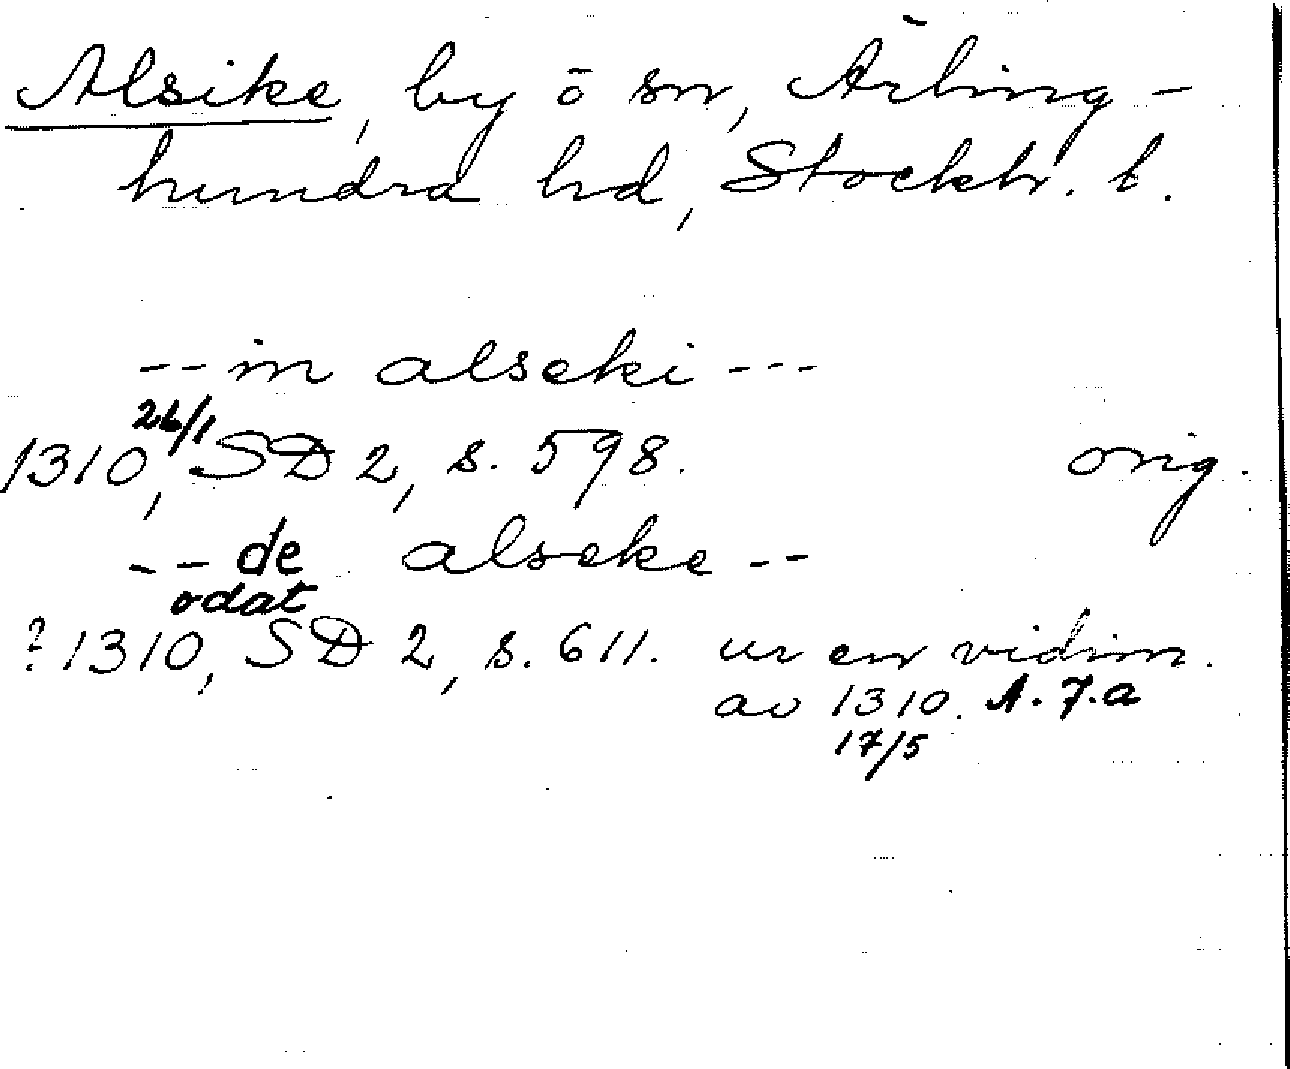 Alsike, by o sn, Ärling-
hundra hd, Stockh. l.
-- in alseki ---
26/1
1310, SD 2, s. 598. orig.
-- de alseke --
odat
? 1310, SD 2, s. 611. ur en vidim.
av 1310. A. 7. a
17/5